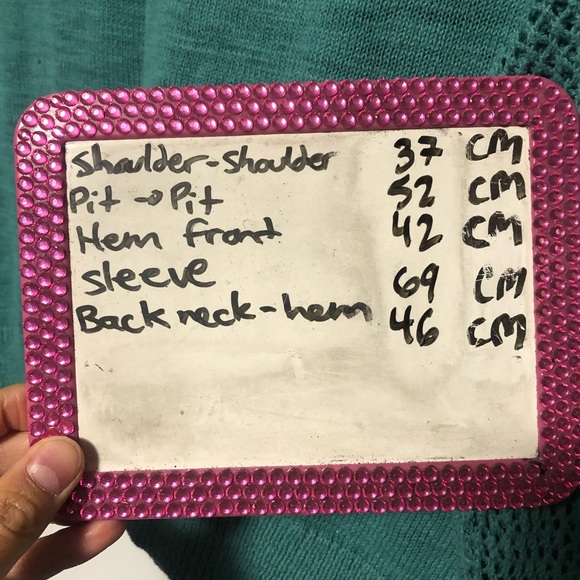 Shoulder-shoulder 37 CM
Pit → Pit 52 CM
Hem front 42 CM
sleeve 69 CM
Back neck-hem 46 CM